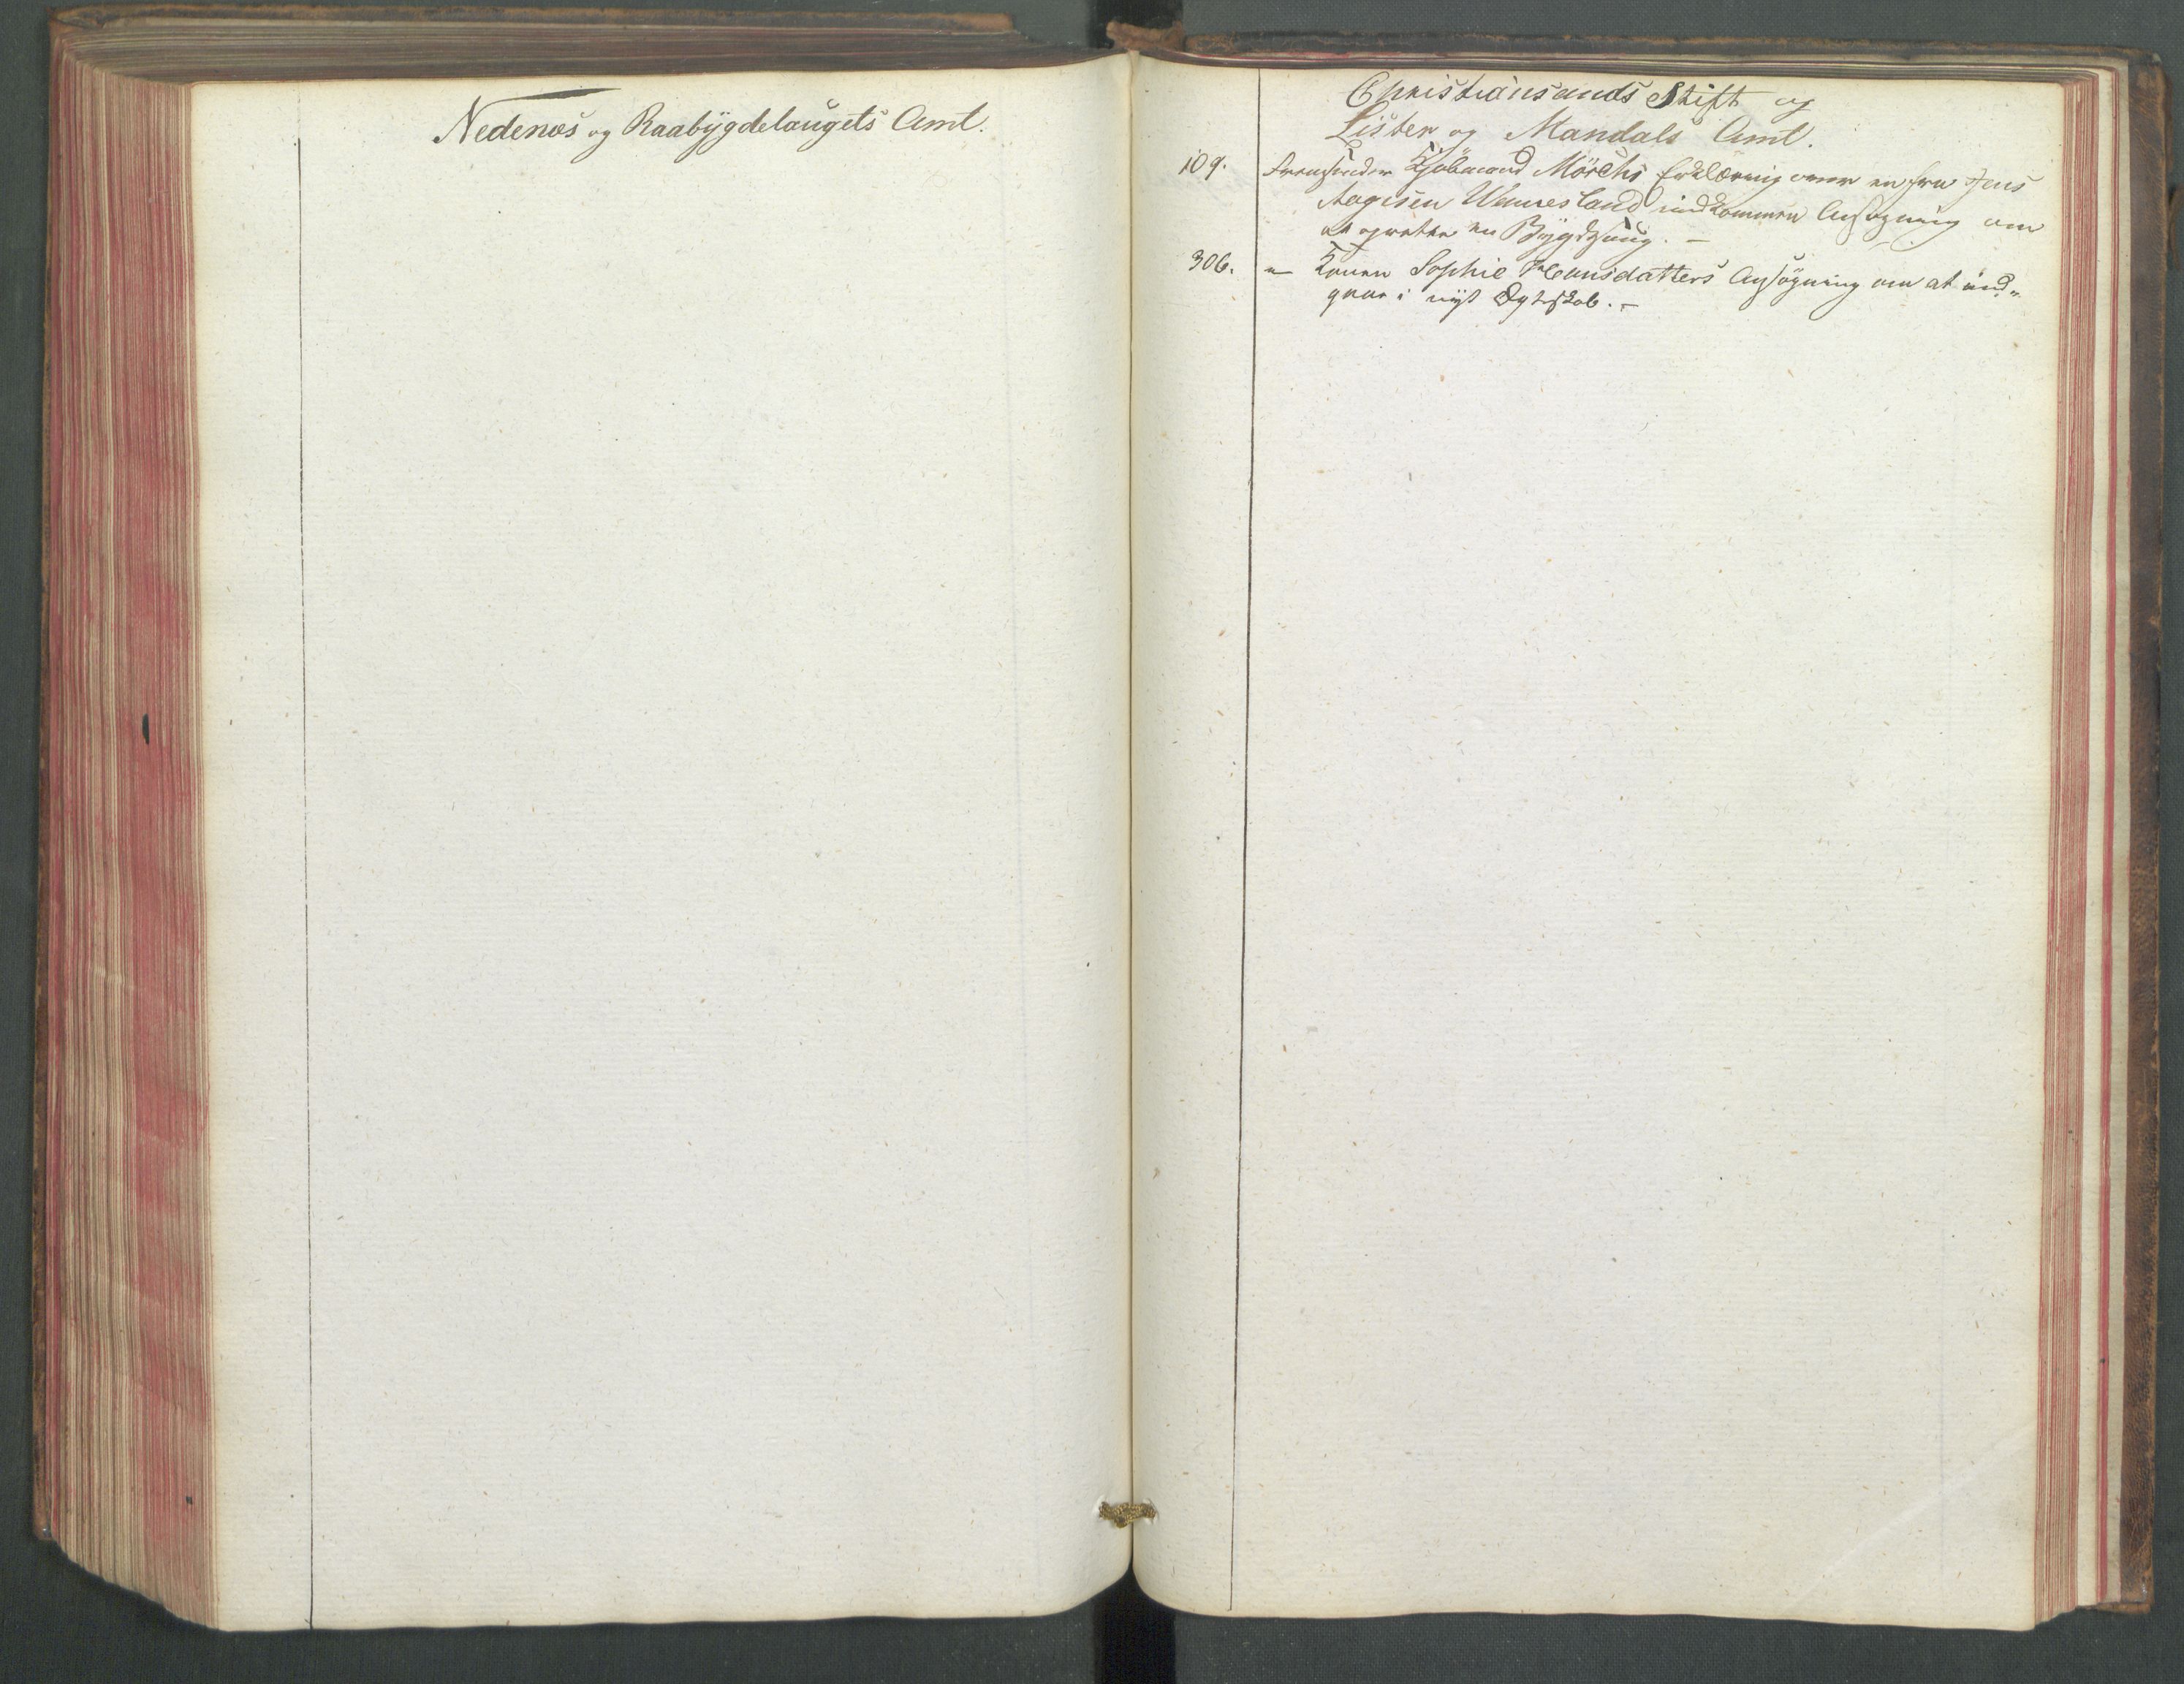 Nedenæs og Raabygdelaugets Amt.
Christiansands Stift og
Lister og Mandals Amt.
109. Fremsender Kjøbmand Mörchs Erklæring over en fra Jens
Aagesen Wennesland indkommen Ansøgning om
at oprette en
306. " Konen Sophie Hansdatters Ansøgning om at ind„
gaae i nyt Ægteskab. –